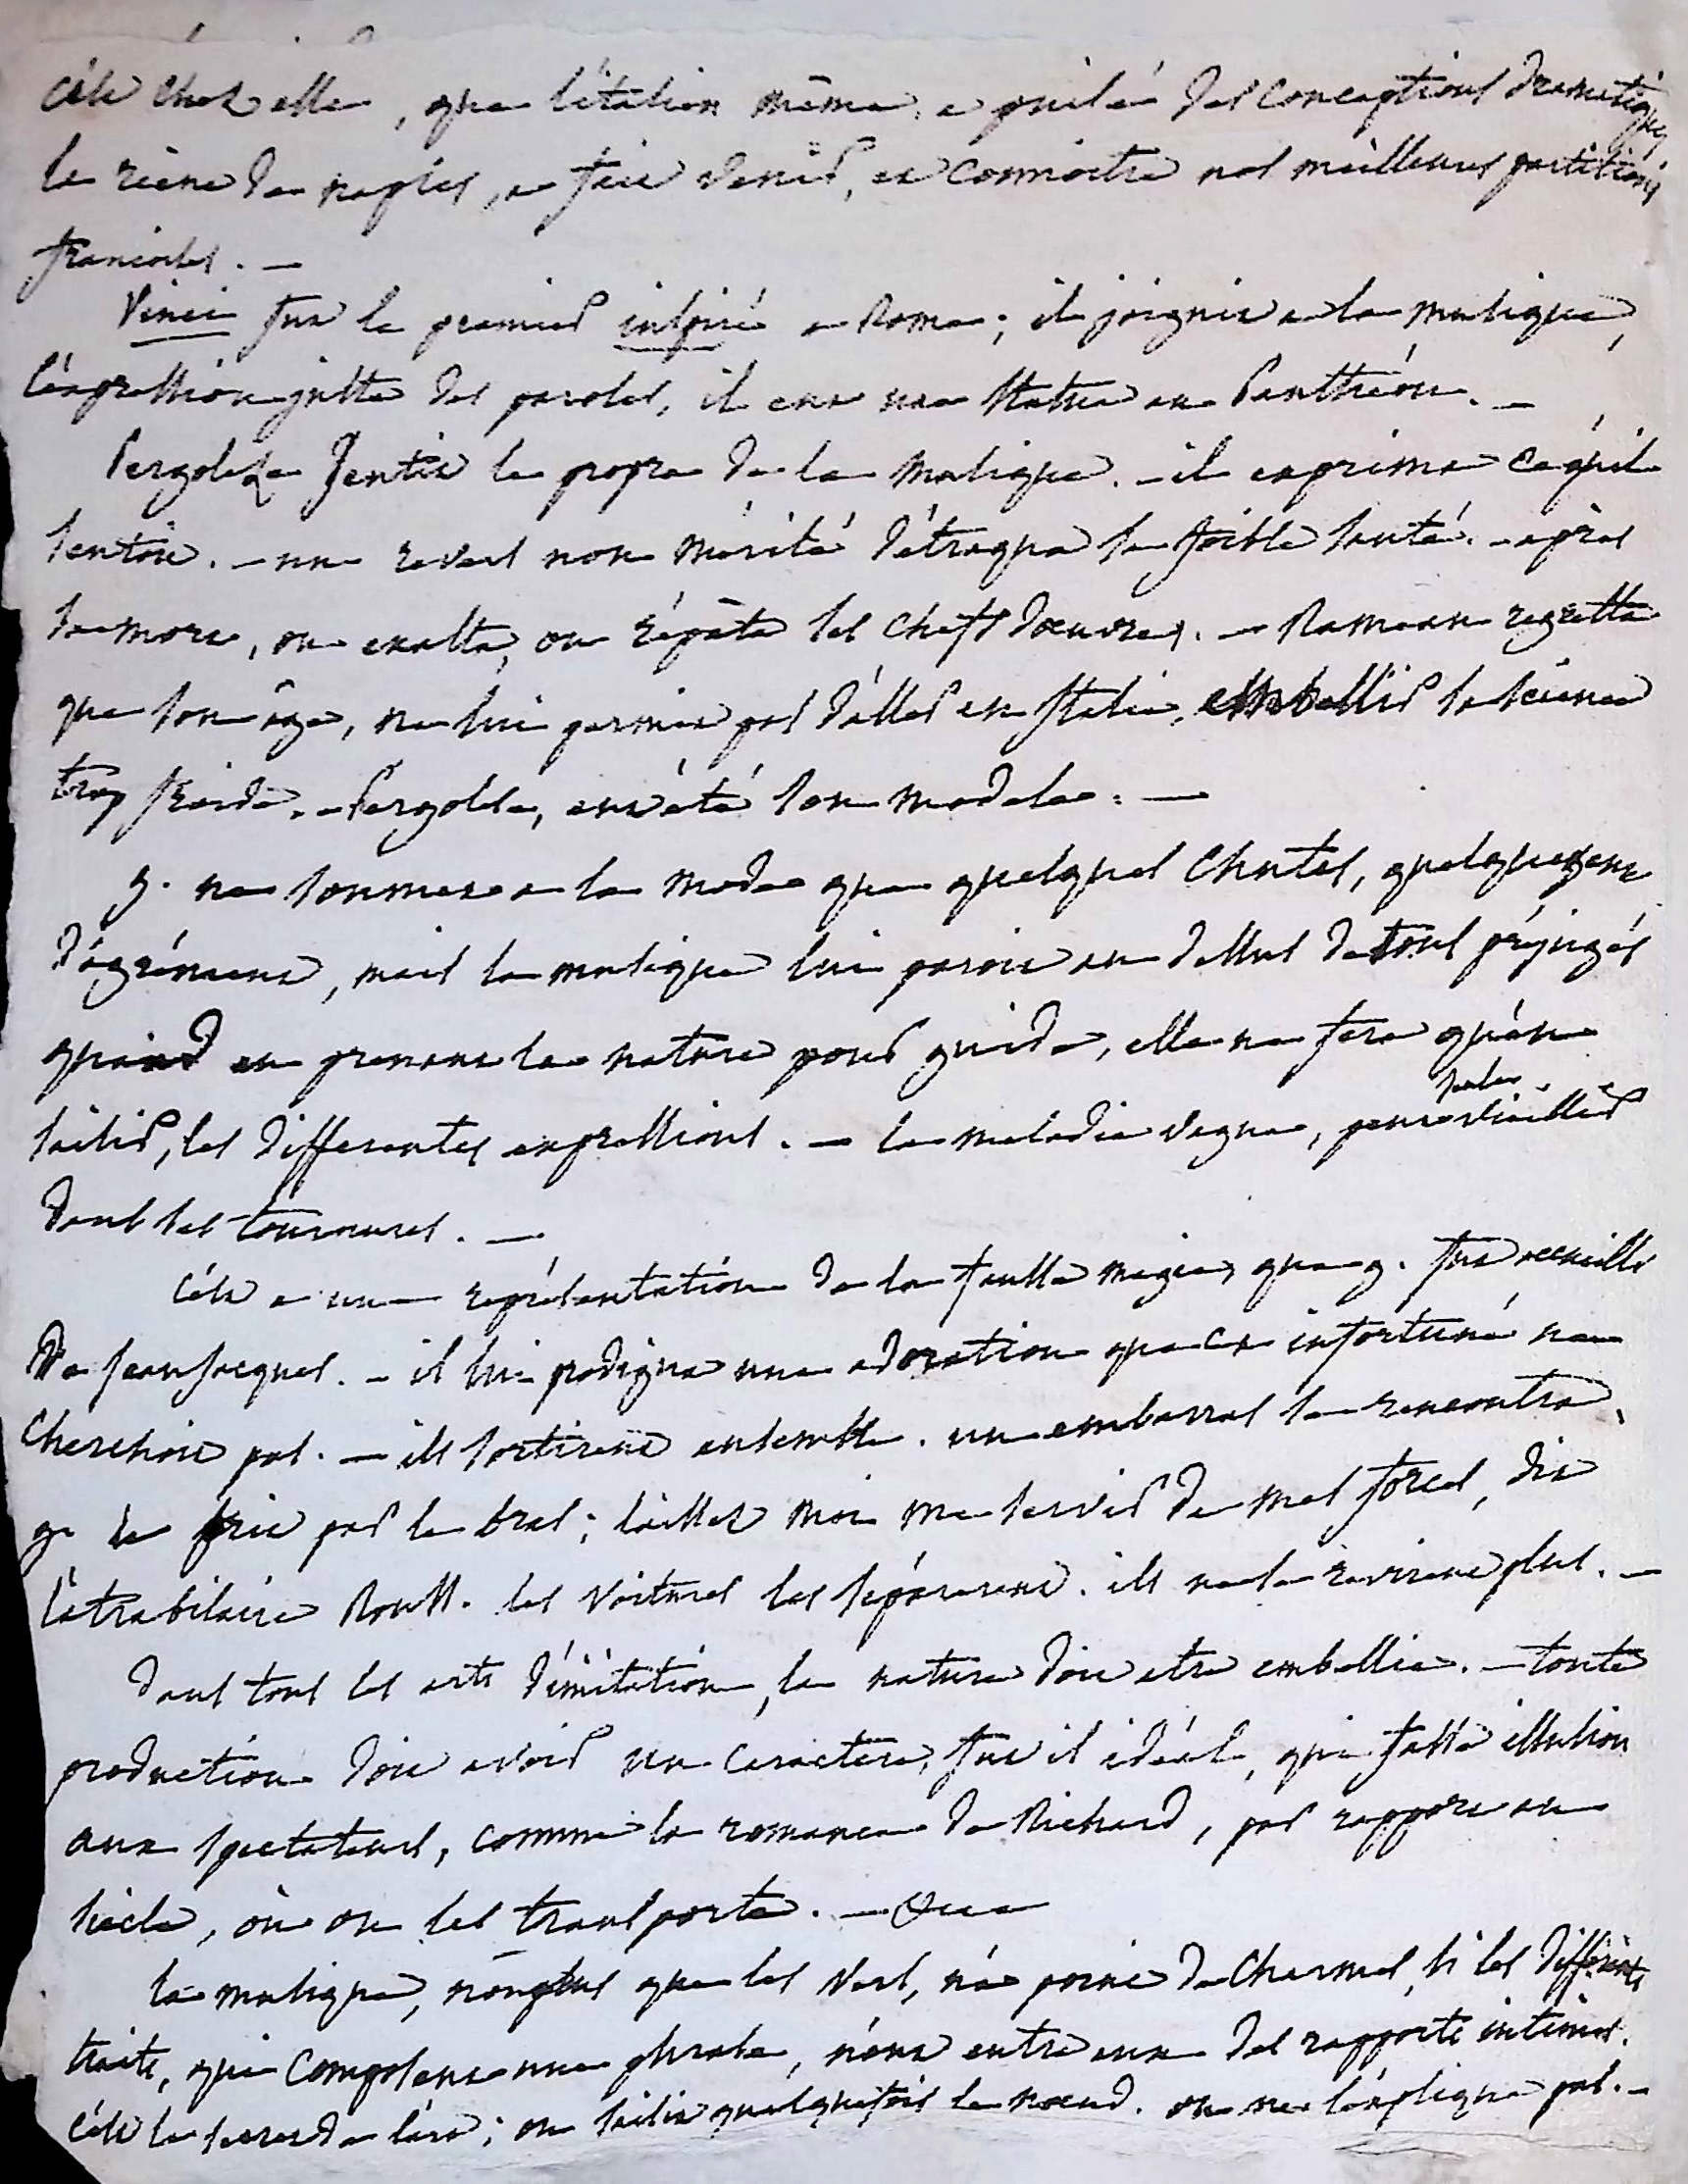 c'est chez elle, que l'italien même, a puisé des conceptions dramatiques
la reine de naples, a fait venir, et connoitre nos meilleures partitions
francoises. —
Vinci fut le premier inspiré a Rome; il joignit a la musique,
l'expression juste des paroles, il eut une statue au Panthéon. —
Pergoleze sentit le propre de la musique. — il exprima ce qu'il
sentoit. — un revers non mérité détraqua sa foible santé. — après
sa mort, on exalta, on répéta ses chefs d'œuvres. — Rameau regretta
que son âge, ne lui permit pas d'aller en Italie, embellir sa science
trop froide. — Pergolese, eut été son modele. —
g. ne soumet a la mode que quelques chutes, quelques gens
d'agrément, mais la musique lui paroit au dessus de tous préjugés
quand en prenant la nature pour guide, elle ne fera qu'en
saisir, les differentes expressions. — la melodie vague, peut seule vieillir
dans ses tournures. —
c'est a une représentation de la fausse magie, que g. fut accueilli
de Jean Jacques. — il lui prodigua une adoration que cet infortuné ne
cherchoit pas. — ils sortirent ensemble. un embarras se rencontra,
g. le prit par le bras; laissez moi me servir de mes forces, dit
l'atrabilaire Rouss. les voitures les separerent. ils ne se revirent plus. —
dans tous les arts d'imitation, la nature doit etre embellie. — toute
production doit avoir un caractere, fut il idéal, qui fasse illusion
aux spectateurs, comme la romance de Richard, par rapport au
siècle, où on les transporte. —
la musique, non plus que les vers, n'a point de charmes, si les différents
traits, qui composent une phrase, n'ont entre eux des rapports intimes.
c'est le secret de l'art; on saisit quelquefois le nœud. on ne l'explique pas. —